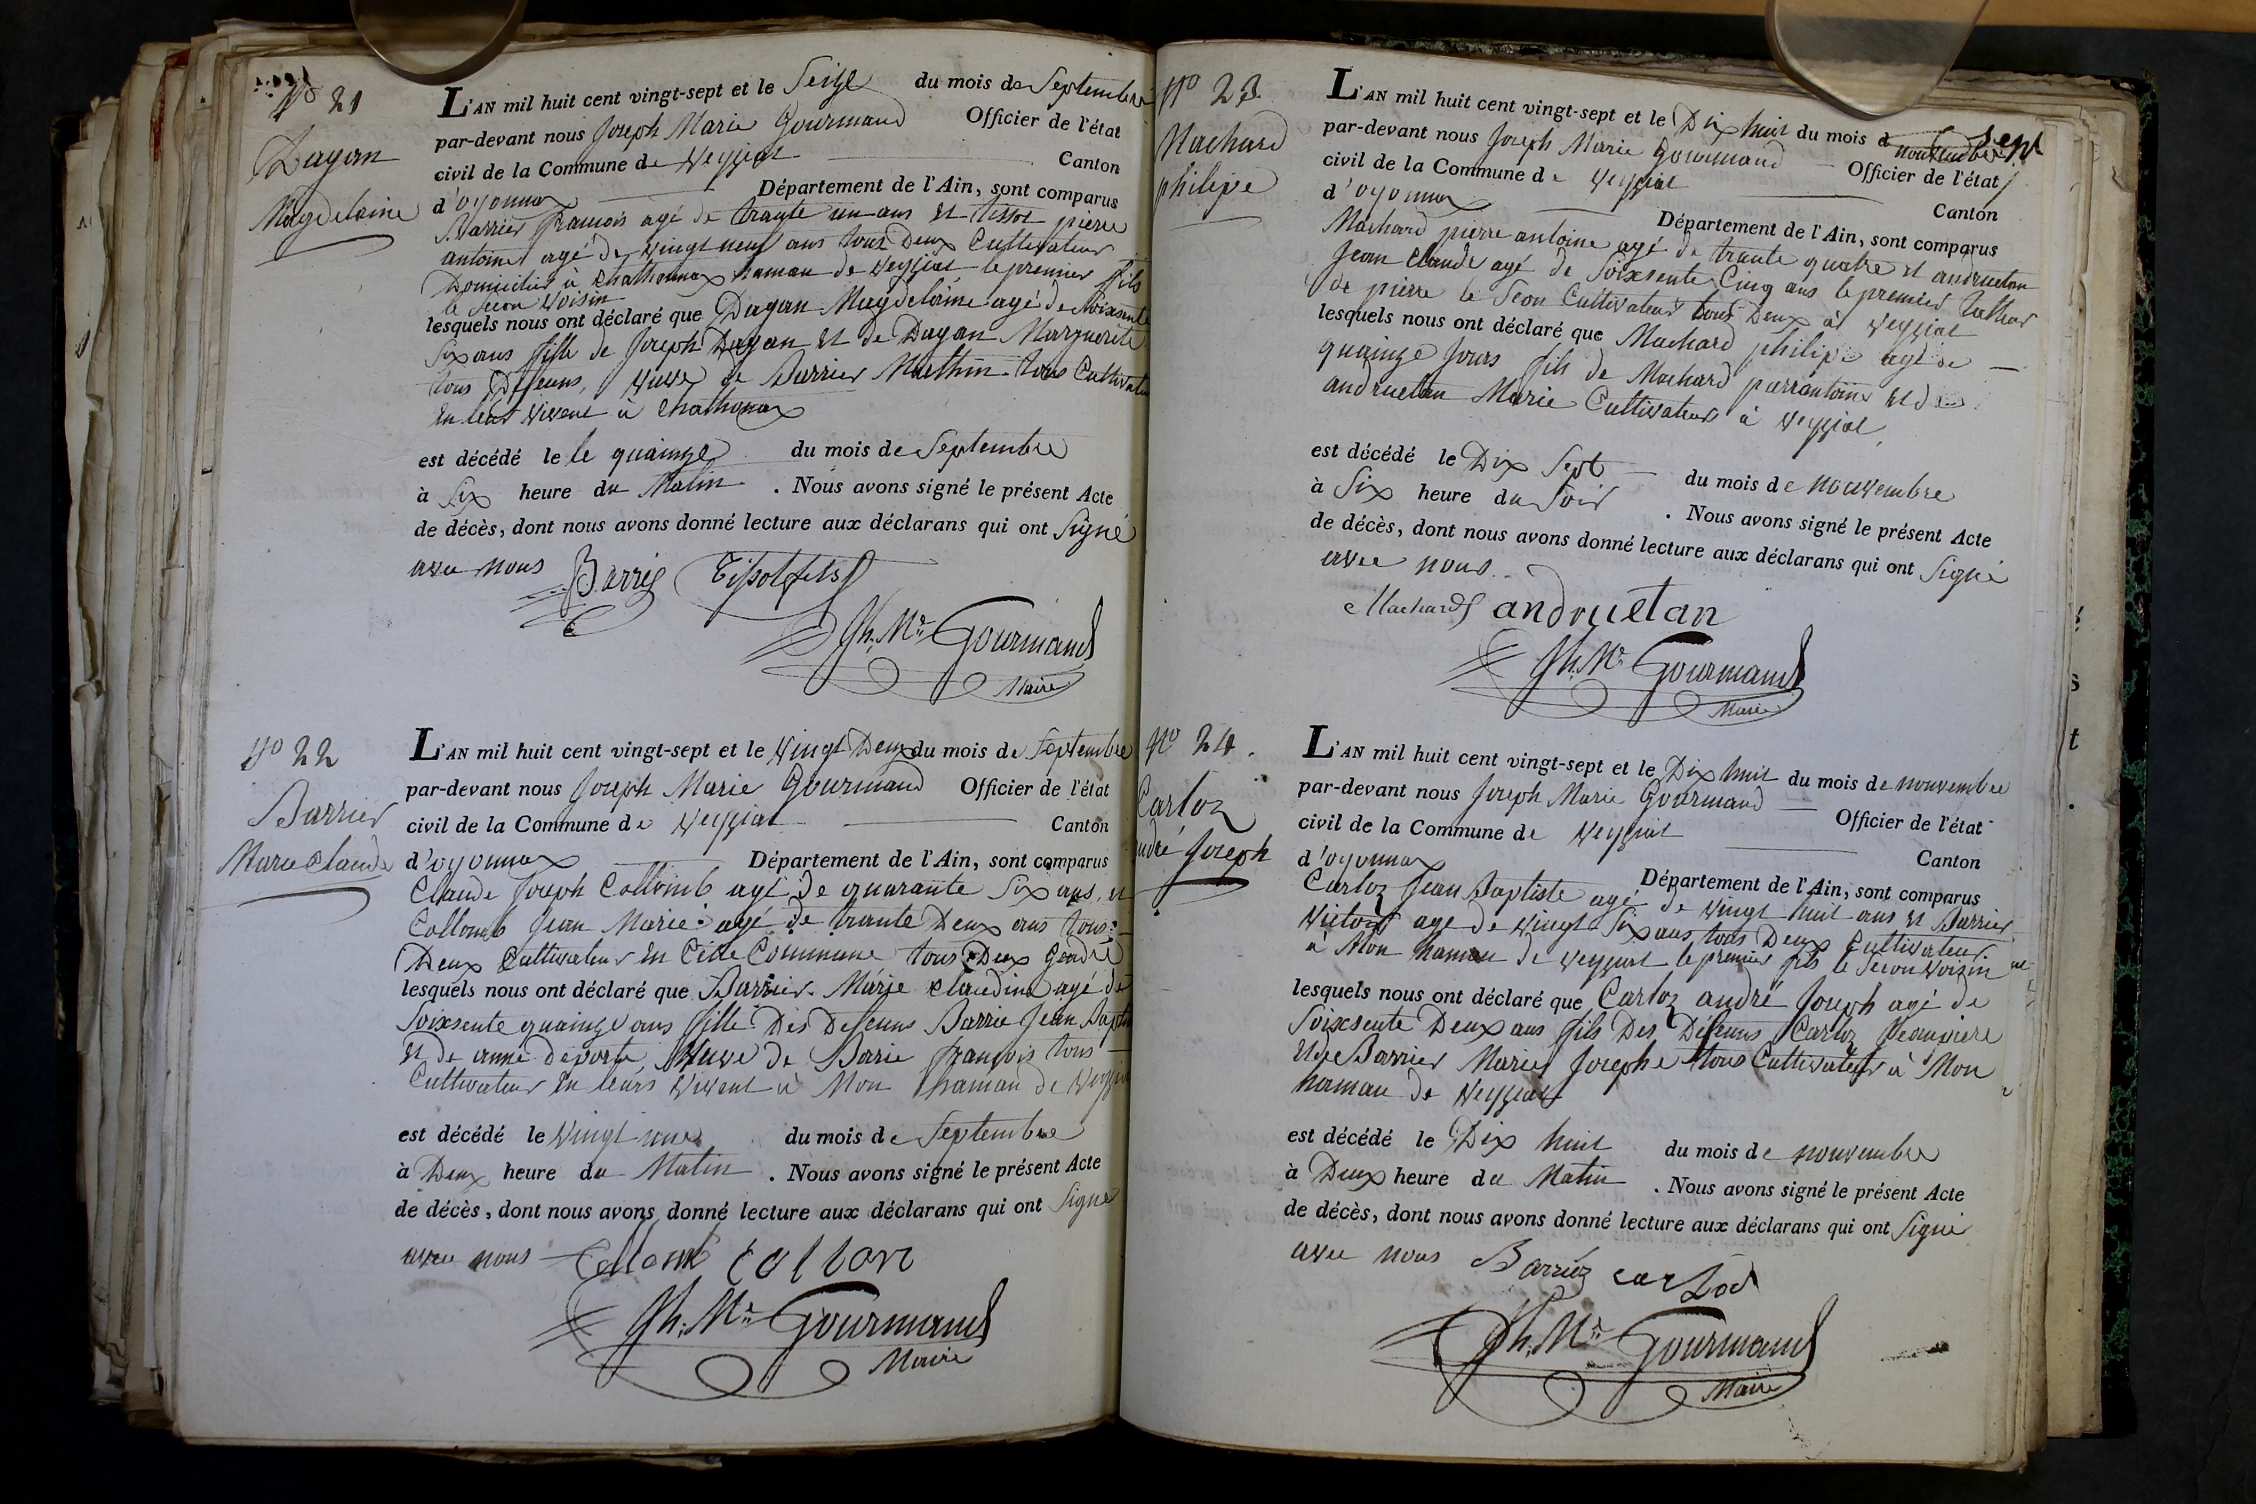 No 21
Dagan
Magdelaine
L'AN mil huit cent vingt-sept et le Seize du mois de Septembre
par-devant nous Joseph Marie Gourmand Officier de l'état
civil de la Commune de Veyziat Canton
d'oyonnax Département de l'Ain, sont comparus
Barrier francois agé de trante un ans et tissot pierre
antoine agé de vingt neuf ans tous Deux Cultivateur
Domicilié à Chathonnax hamau de Veyziat le premier fils
le secon voisin
lesquels nous ont déclaré que Dagan Magdelaine agé de soixsente
six ans fille de Joseph Dagan et de Dagan Marguerite
tous Defeuns, veuve de Barrier Mathin tous Cultivateur
en leur vivent à Chathonax
est décédé le le quainze du mois de Septembre
à Six heure du Matin . Nous avons signé le présent Acte
de décès, dont nous avons donné lecture aux déclarans qui ont Signé
avec nous Barrie Tissot fils
Jh. Mie Gourmand
Maire
No 22
Barrier
Marie Claude
L'AN mil huit cent vingt-sept et le Vingt Deux du mois de Septembre
par-devant nous Joseph Marie Gourmand Officier de l'état
civil de la Commune de Veyziat Canton
d'oyonnax Département de l'Ain, sont comparus
Claude Joseph Collomb agé de quarante Six ans, et
Collomb Jean Marie agé de trante Deux ans tous
Deux Cultivateur en Cette Commune tous Deux Gendre
lesquels nous ont déclaré que Barrier Marie Claudine agé de
Soixsente quainze ans fille Des Defeuns Barrie Jean Baptis
et de anne deporte, Veuve de Barie françois tous
Cultivateur en leurs vivent à Mon hamau de Veyziat
est décédé le Vingt une du mois de Septembre
à Deux heure du Matin . Nous avons signé le présent Acte
de décès, dont nous avons donné lecture aux déclarans qui ont Signé
avec nous Collomb collon
Jh. Mie Gourmand
Maire
No 23
Machard
philipe
L'AN mil huit cent vingt-sept et le Dix huit du mois de nouvembre sept
par-devant nous Joseph Marie Gourmand Officier de l'état
civil de la Commune de Veyziat Canton
d'oyonnax Département de l'Ain, sont comparus
Machard pierre antoine agé de trante quatre et andruetan
Jean Claude agé de Soixsente Cinq ans le premier
de pierre le Secon Cultivateur tous Deux à Veyziat
lesquels nous ont déclaré que Machard philipe agé de
quainze Jours fils de Machard pierrantoine et de
andruetan Marie Cultivateur à Veyziat
est décédé le Dix Sept du mois de nouvembre
à Six heure du Soir . Nous avons signé le présent Acte
de décès, dont nous avons donné lecture aux déclarans qui ont Signé
avec nous
Machard andruetan
Jh. Mie Gourmand
Maire
No 24
Carloz
andré Joseph
L'AN mil huit cent vingt-sept et le Dix huit du mois de nouvembre
par-devant nous Joseph Marie Gourmand Officier de l'état
civil de la Commune de Veyziat Canton
d'oyonnax Département de l'Ain, sont comparus
Carloz Jean Baptiste agé de vingt huit ans et Barrier
Victor age de vingt Six ans tous Deux Cultivateur
à Mon hamau de Veyziat le premier fils le Secon Voisin
lesquels nous ont déclaré que Carloz andré Joseph agé de
Soixsente Deux ans fils Des Defeuns Carloz
et de Barrier Marie Josephe tous Cultivateur à Mon
hamau de Veyziat
est décédé le Dix huit du mois de nouvembre
à Deux heure du Matin . Nous avons signé le présent Acte
de décès, dont nous avons donné lecture aux déclarans qui ont Signé
avec nous Barriéz carloz
Jh. Mie Gourmand
Maire